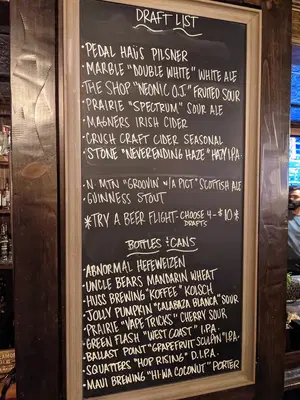 DRAFT LIST
• PEDAL HAÜS PILSNER
• MARBLE "DOUBLE WHITE" WHITE ALE
• THE SHOP "NEONIC O.J." FRUITED SOUR
• PRAIRIE "SPECTRUM" SOUR ALE
• MAGNERS IRISH CIDER
• CRUSH CRAFT CIDER SEASONAL
• STONE "NEVERENDING HAZE" HAZY IPA
• N. MTN "GROOVIN' W/A PICT" SCOTTISH ALE
• GUINNESS STOUT
*TRY A BEER FLIGHT - CHOOSE 4 DRAFTS - $10*
BOTTLES & CANS
• ABNORMAL HEFEWEIZEN
• UNCLE BEARS MANDARIN WHEAT
• HUSS BREWING "KOFFEE" KOLSCH
• JOLLY PUMPKIN "CALABAZA BLANCA" SOUR
• PRAIRIE "VAPE TRICKS" CHERRY SOUR
• GREEN FLASH "WEST COAST" I.P.A.
• BALLAST POINT "GRAPEFRUIT SCULPIN" I.P.A.
• SQUATTERS "HOP RISING" D.I.P.A.
• MAUI BREWING "HI-WA COCONUT" PORTER